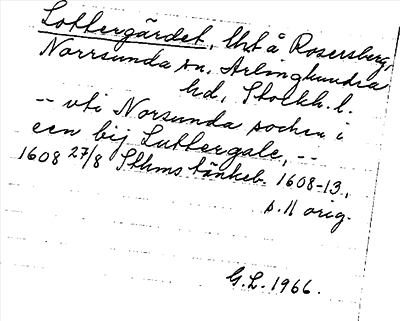 Lottergärdet, lht å Rosersberg,
Norrsunda sn, Ärlinghundra
hd, Stockh. l.
-- uti Norsunda sochen i
een bij Luttergale, --
1608 27/8 Sthms tänkeb. 1608-13,
s. 11 orig.
G.L. 1966.